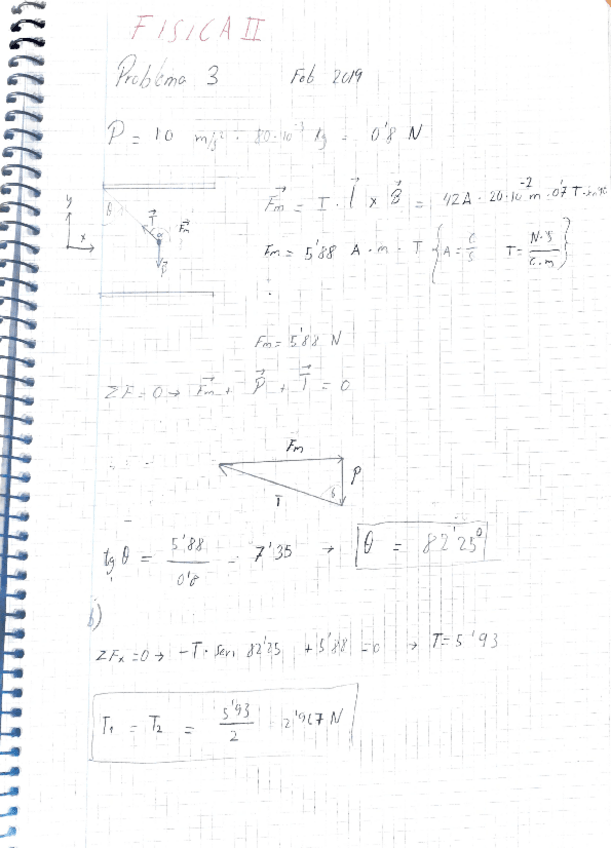 FISICA II
Problema 3 Feb 2019
P = 10 m/s² · 80·10⁻³ kg = 0'8 N
y
x
θ
T
Fm
P
Fm = I · l × B = 42A · 20·10⁻² m · 0'7 T ·
Fm = 5'88 A · m · T { A = C/S T = N·S/C·m }
Fm = 5'88 N
ΣF = 0 → Fm + P + T = 0
Fm
P
T
tg θ = 5'88/0'8 = 7'35 → θ = 82'25º
b)
ΣFx = 0 → -T · sen 82'25 + 5'88 = 0 → T = 5'93
T₁ = T₂ = 5'93/2 2'967 N